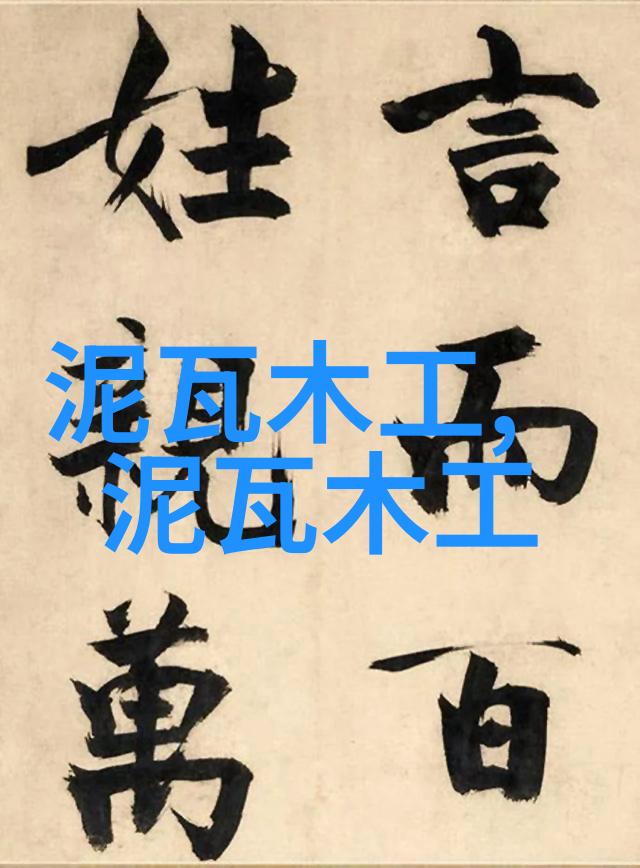 言而百
姓親萬
泥瓦木工,
泥瓦木工